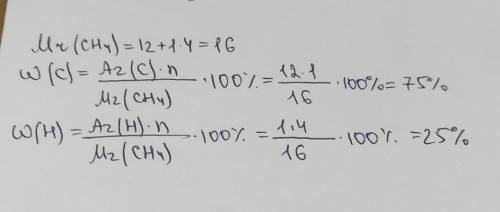 Mr(CH4)=12+1·4=16
ω(C)= Ar(C)·n / Mr(CH4) ·100%= 12·1 / 16 ·100%=75%
ω(H)= Ar(H)·n / Mr(CH4) ·100%= 1·4 / 16 ·100% =25%